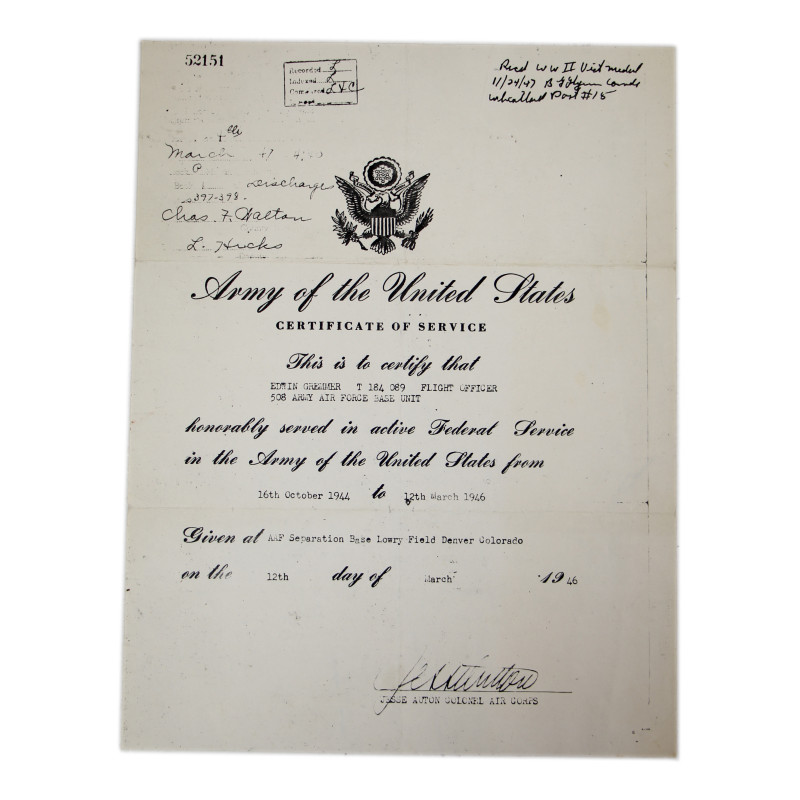 52151
Recorded
Indexed
Compared
Recd WW II Vict medal
11/24/47
Post #15
March 47
Discharge
397-398
Chas. F. Walton
L. Hicks
Army of the United States
CERTIFICATE OF SERVICE
This is to certify that
EDWIN GREMMER T 184 089 FLIGHT OFFICER
508 ARMY AIR FORCE BASE UNIT
honorably served in active Federal Service
in the Army of the United States from
16th October 1944 to 12th March 1946
Given at AAF Separation Base Lowry Field Denver Colorado
on the 12th day of March 1946
JESSE AUTON COLONEL AIR CORPS